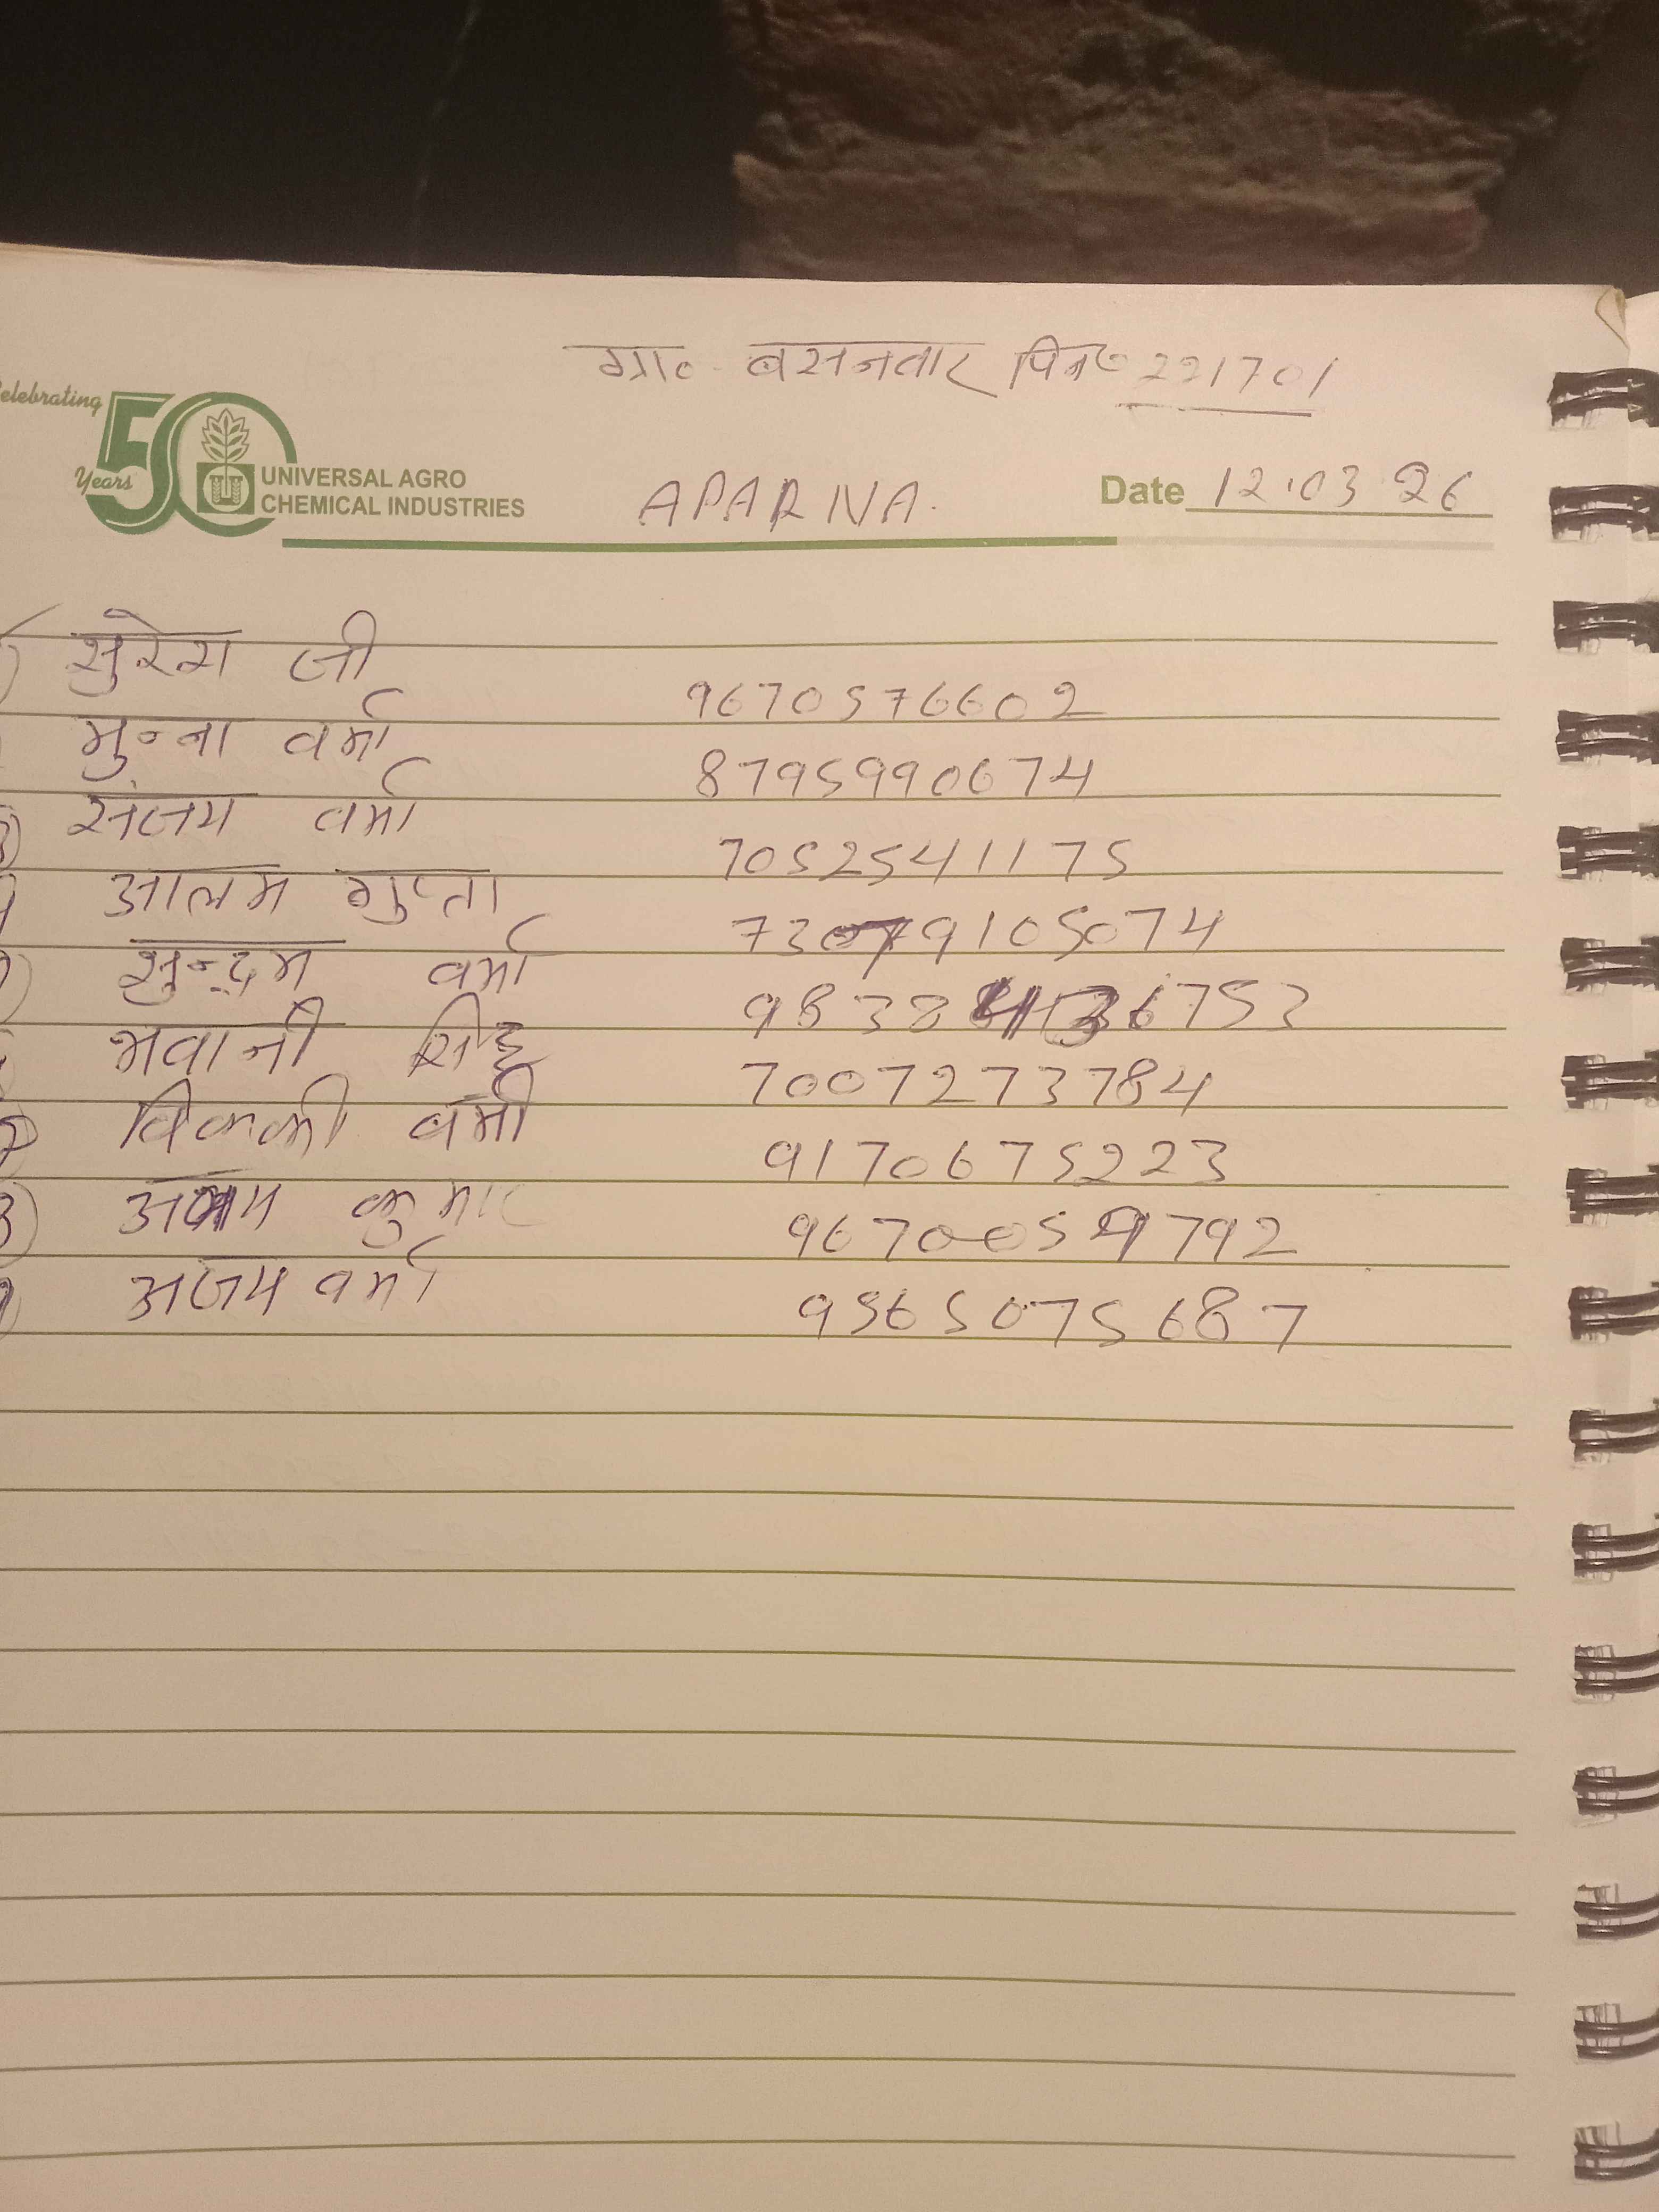 ग्रा० बसनवार पिन० 221701
Celebrating
50
Years
UNIVERSAL AGRO
CHEMICAL INDUSTRIES
APARNA.
Date 12.03 26
सुरेश जी
9670576602
मुन्ना वर्मा
8795990674
संजय वर्मा
7052541175
आलम गुप्ता
79105074
सुन्द्रम वर्मा
भवानी सिंह
7007273784
विक्की वर्मा
9170675223
कुमार
अजय वर्मा
9565075687